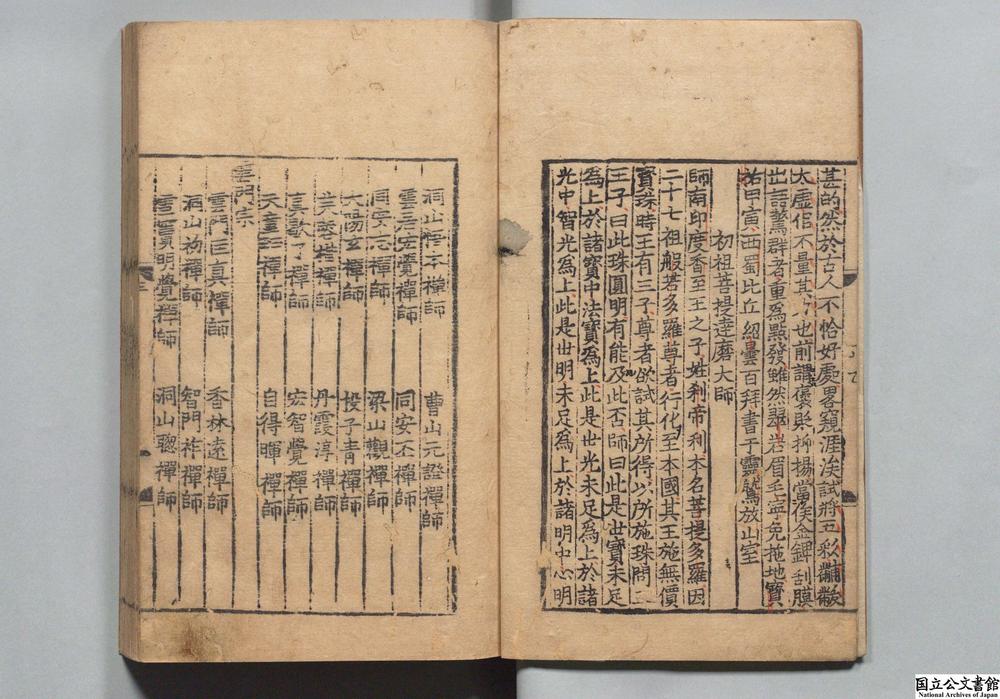 甚的然於古人不恰好處畧窺涯涘試將五彩黼黻
大虛佀不量其也前謂褒貶抑揚當俟金錍刮膜
出語驚群者重為點發雖然翠岩眉毛寧免拖地寶
祐甲寅西蜀比丘紹曇百拜書于靈鷲放山室
初祖菩提達磨大師
師南印度香至王之子姓刹帝利本名菩提多羅因
二十七祖般若多羅尊者行化至本國其王施無價
寶珠時王有三子尊者欲試其所得以所施珠問三
王子曰此珠圓明有能及此否師曰此是世寶未足
為上於諸寶中法寶為上此是世光未足為上於諸
光中智光為上此是世明未足為上於諸明中心明
洞山悟本禪師 曹山元證禪師
雲居宏覺禪師 同安丕禪師
同安志禪師 梁山觀禪師
大陽玄禪師 投子青禪師
芙蓉楷禪師 丹霞淳禪師
真歇了禪師 宏智覺禪師
天童珏禪師 自得暉禪師
雲門宗
雲門匡真禪師 香林遠禪師
智門祚禪師
雪竇明覺禪師 洞山聰禪師
国立公文書館
National Archives of Japan